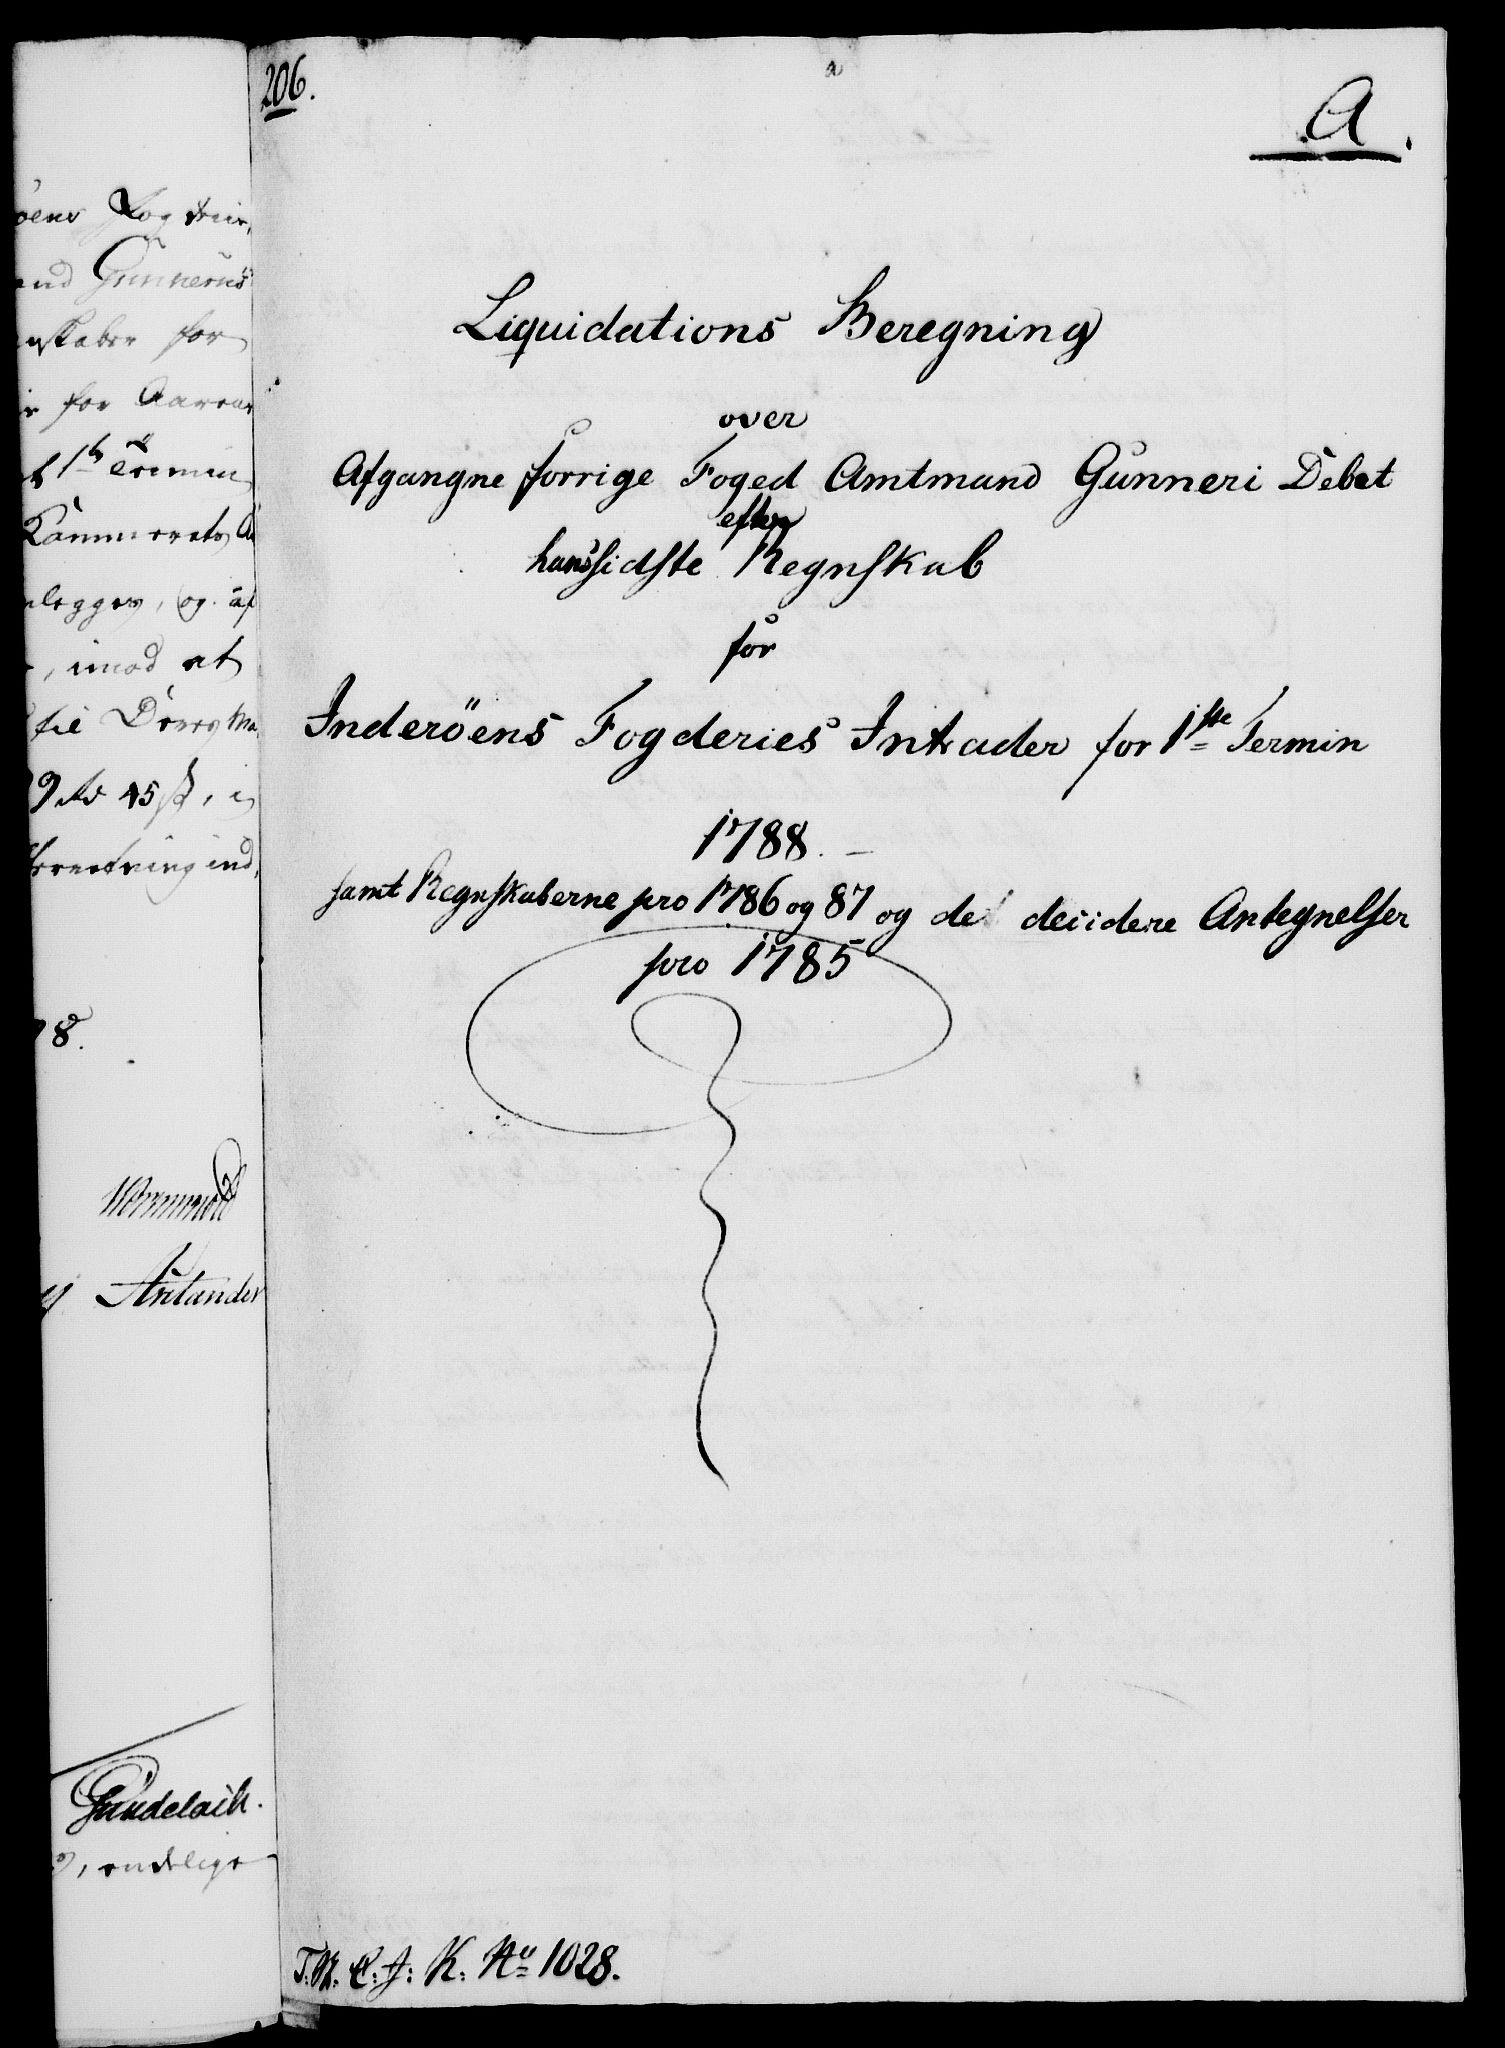 206.
A.
Liquidations Beregning
over
Afgangne forrige Foged Amtmand Gunneri Debet
efter
hans sidste Regnskab
for
Inderöens Fogderies Intrader for 1ste Termin
1788.
samt Regnskaberne pro 1786 og 87 og de deciderede Antegnelser
pro 1785
T. K. C. J: K. No 1028.
öens Fogderie,
Gunnerus
nskaber for
for Aarene
1te Termin
Kammerets
legges, og af
, imod at
til Deres Ma
9 rd 45 s,
8.
Wormvold
Arctander
Gundelach.
, endelige